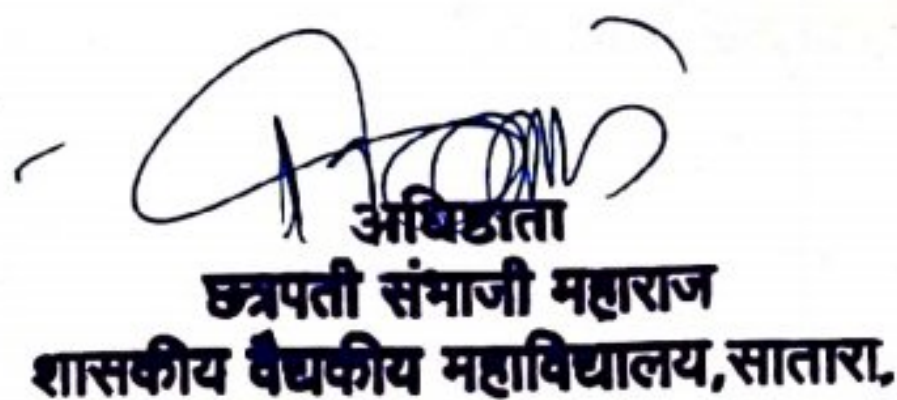 अधिष्ठाता
छत्रपती संभाजी महाराज
शासकीय वैद्यकीय महाविद्यालय,सातारा.